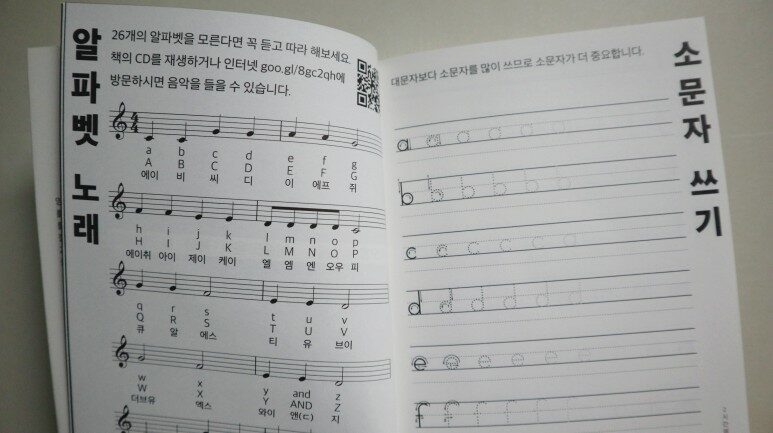 알파벳 노래
26개의 알파벳을 모른다면 꼭 듣고 따라 해보세요.
책의 CD를 재생하거나 인터넷 goo.gl/8gc2qh에
방문하시면 음악을 들을 수 있습니다.
4
4
a b c d e f g
A B C D E F G
에이 비 씨 디 이 에프 쥐
h i j k l m n o p
H I J K L M N O P
에이취 아이 제이 케이 엘 엠 엔 오우 피
q r s t u v
Q R S T U V
큐 알 에스 티 유 브이
w x y and z
W X Y AND Z
더브유 엑스 와이 앤(ㄷ) 지
소문자 쓰기
대문자보다 소문자를 많이 쓰므로 소문자가 더 중요합니다.
a a a a a a
b b b b b b
c c c c c c
d d d d d d
e e e e e e
f f f f f f